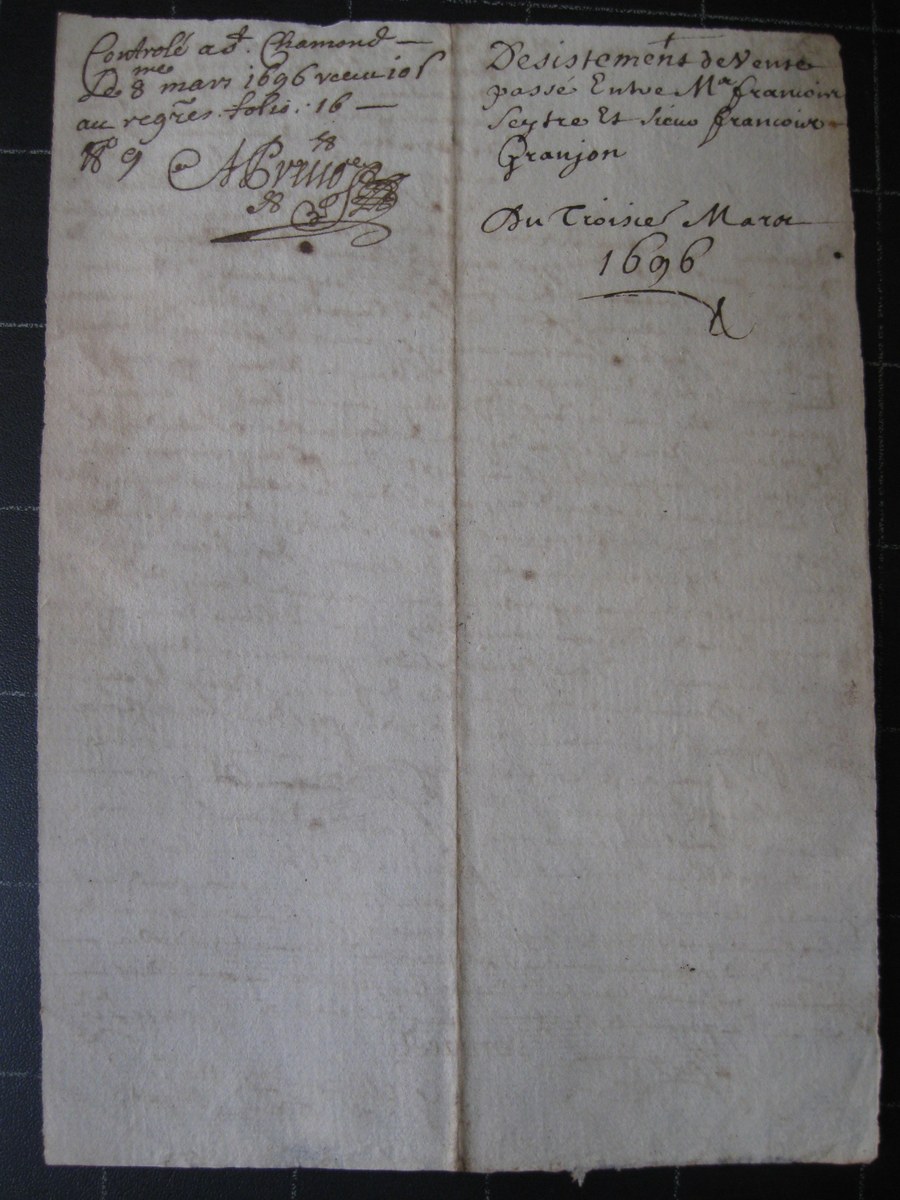 Controlé a St. Chamond
Le 8me mars 1696 receu 10s
au regres. folio. 16
No 9
+
Desistement de Vente
passé Entre Mr francois
Seytre Et sieur francois
Granjon
Du Troisie Mars
1696